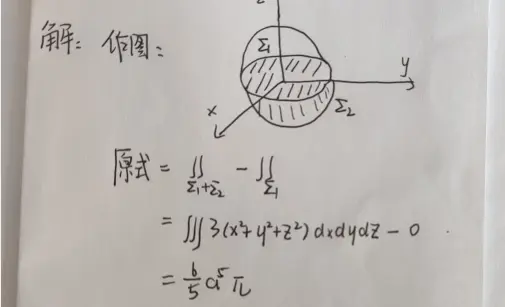 z
解：作图：
Σ1
y
x
Σ2
原式 = ∬Σ1+Σ2 - ∬Σ1
= ∭ 3(x²+y²+z²) dxdydz - 0
= 6/5 a⁵ π